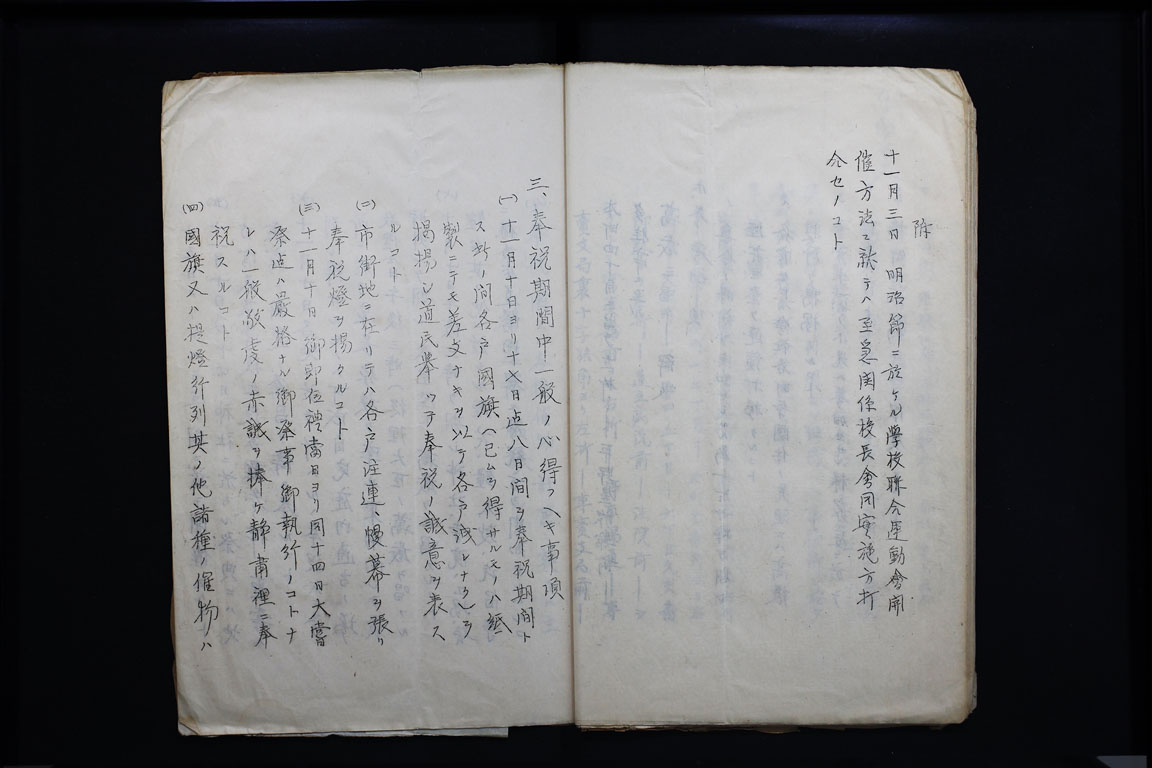 附
十一月三日明治節ニ於ケル學校聯合運動會開
催方法ニ就テハ至急関係校長會同実施方打
合セノコト
三、奉祝期間中一般ノ心得フヘキ事項
(一)十一月十日ヨリ十七日迄八日間ヲ奉祝期間ト
ス此ノ間各戸國旗(已ムヲ得サルモノハ紙
製ニテモ差支ナキヲ以テ各戸洩レナク)ヲ
掲揚シ道民擧ツテ奉祝ノ誠意ヲ表ス
ルコト
(二)市街地ニ在リテハ各戸注連、幔幕ヲ張リ
奉祝燈ヲ掲クルコト
(三)十一月十日御即位禮當日ヨリ同十四日大嘗
祭迄ハ嚴粛ナル御祭事御執行ノコトナ
レハ一般敬虔ノ赤誠ヲ捧ケ静粛裡ニ奉
祝スルコト
(四)國旗又ハ提燈行列其ノ他諸種ノ催物ハ